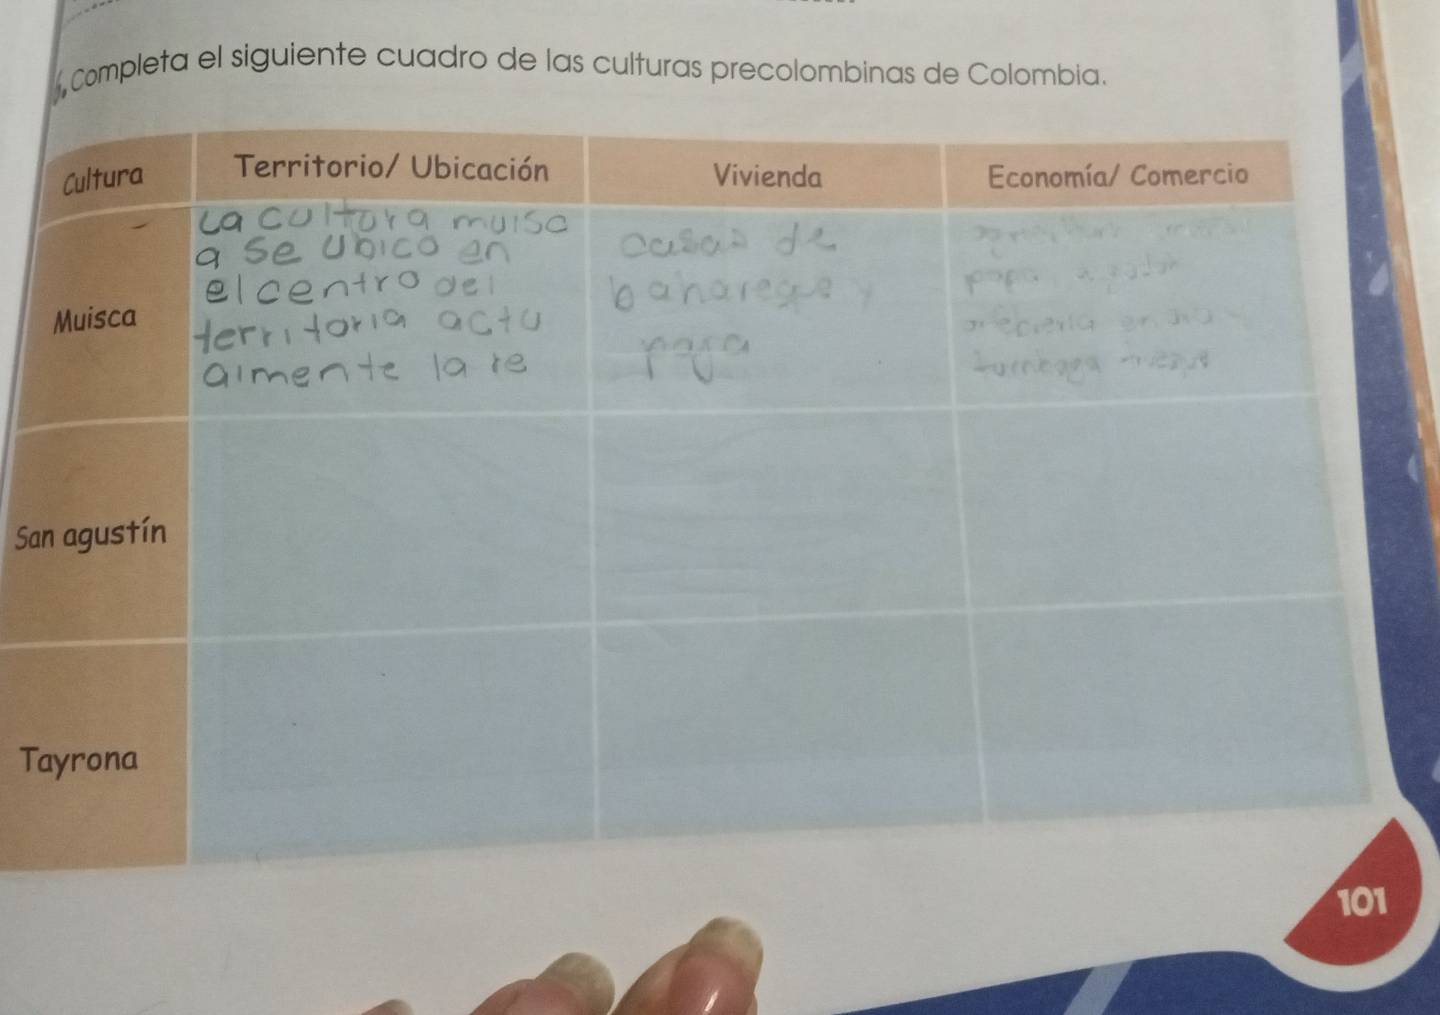 Completa el siguiente cuadro de las culturas precolombinas de Colombia.
Cultura
Territorio/ Ubicación
Vivienda
Economía/ Comercio
Muisca
La cultora muisc
a se ubico en
el centro del
territoria actu
almente la re
casas de
bahareque y
paja
papa
San agustín
Tayrona
101